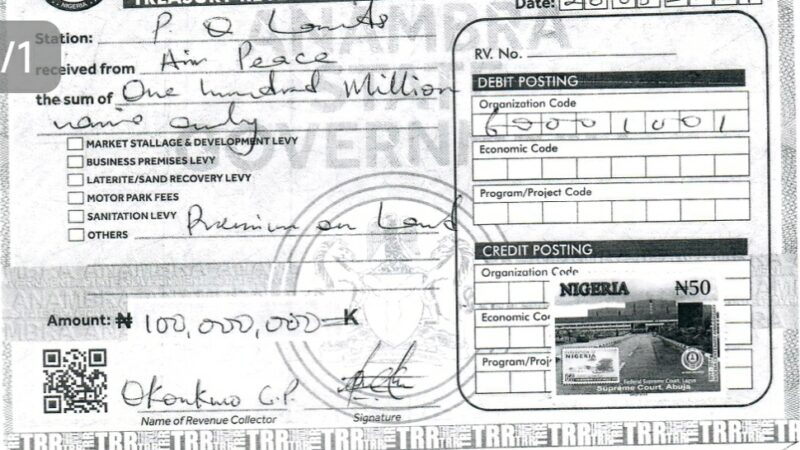 NIGERIA
Date:
/1
Station: P. O Lands
received from Air Peace
the sum of One hundred Million
naira only
MARKET STALLAGE & DEVELOPMENT LEVY
BUSINESS PREMISES LEVY
LATERITE/SAND RECOVERY LEVY
MOTOR PARK FEES
SANITATION LEVY
OTHERS Premium on Land
Amount: ₦ 100,000,000= K
Okonkwo C.P.
Name of Revenue Collector
Signature
ANAMBRA
STATE
GOVERNMENT
RV. No.
DEBIT POSTING
Organization Code
Economic Code
Program/Project Code
CREDIT POSTING
Organization Code
Economic Co
Program/Proj
NIGERIA ₦50
NIGERIA
Federal Supreme Court, Lagos
Supreme Court, Abuja
TRR TRR TRR TRR TRR TRR TRR TRR